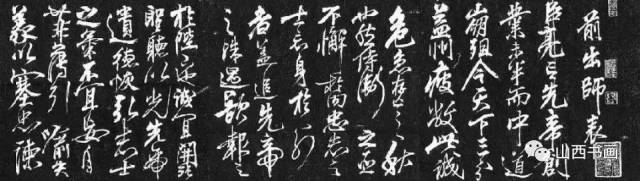 前出師表
臣亮言先帝創
業未半而中道
崩殂今天下三分
益州疲敝此誠
危急存亡之秋
也然侍衛之臣
不懈於內忠志之
士忘身於外
者蓋追先帝
之殊遇欲報之
於陛下也誠宜開張
聖聽以光先帝
遺德恢弘志士
之氣不宜妄自
菲薄引喻失
義以塞忠諫
山西书画